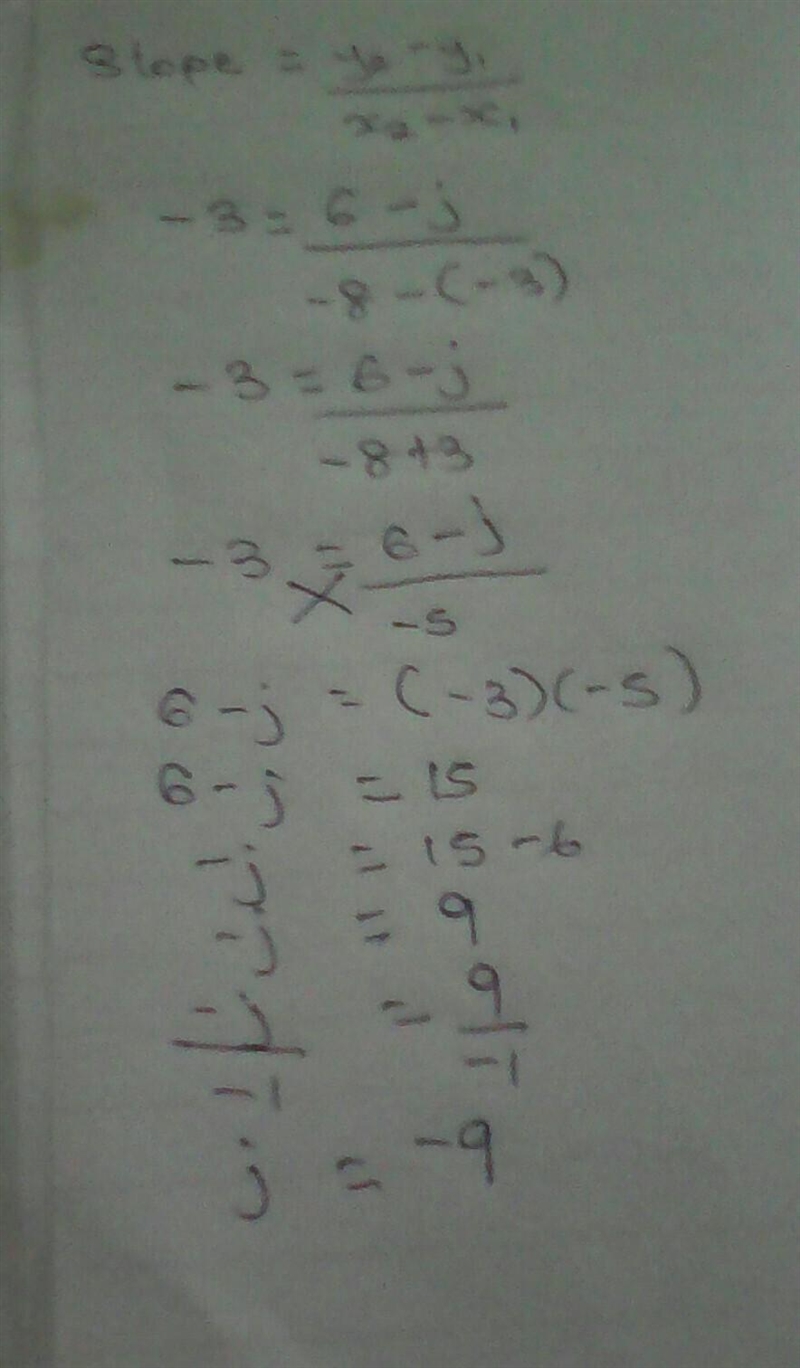 Slope = y₂ - y₁
x₂ - x₁
-3 = 6 - j
-8 - (-3)
-3 = 6 - j
-8 + 3
-3 = 6 - j
-5
6 - j = (-3)(-5)
6 - j = 15
-j = 15 - 6
-j = 9
-j = 9
-1 -1
j = -9